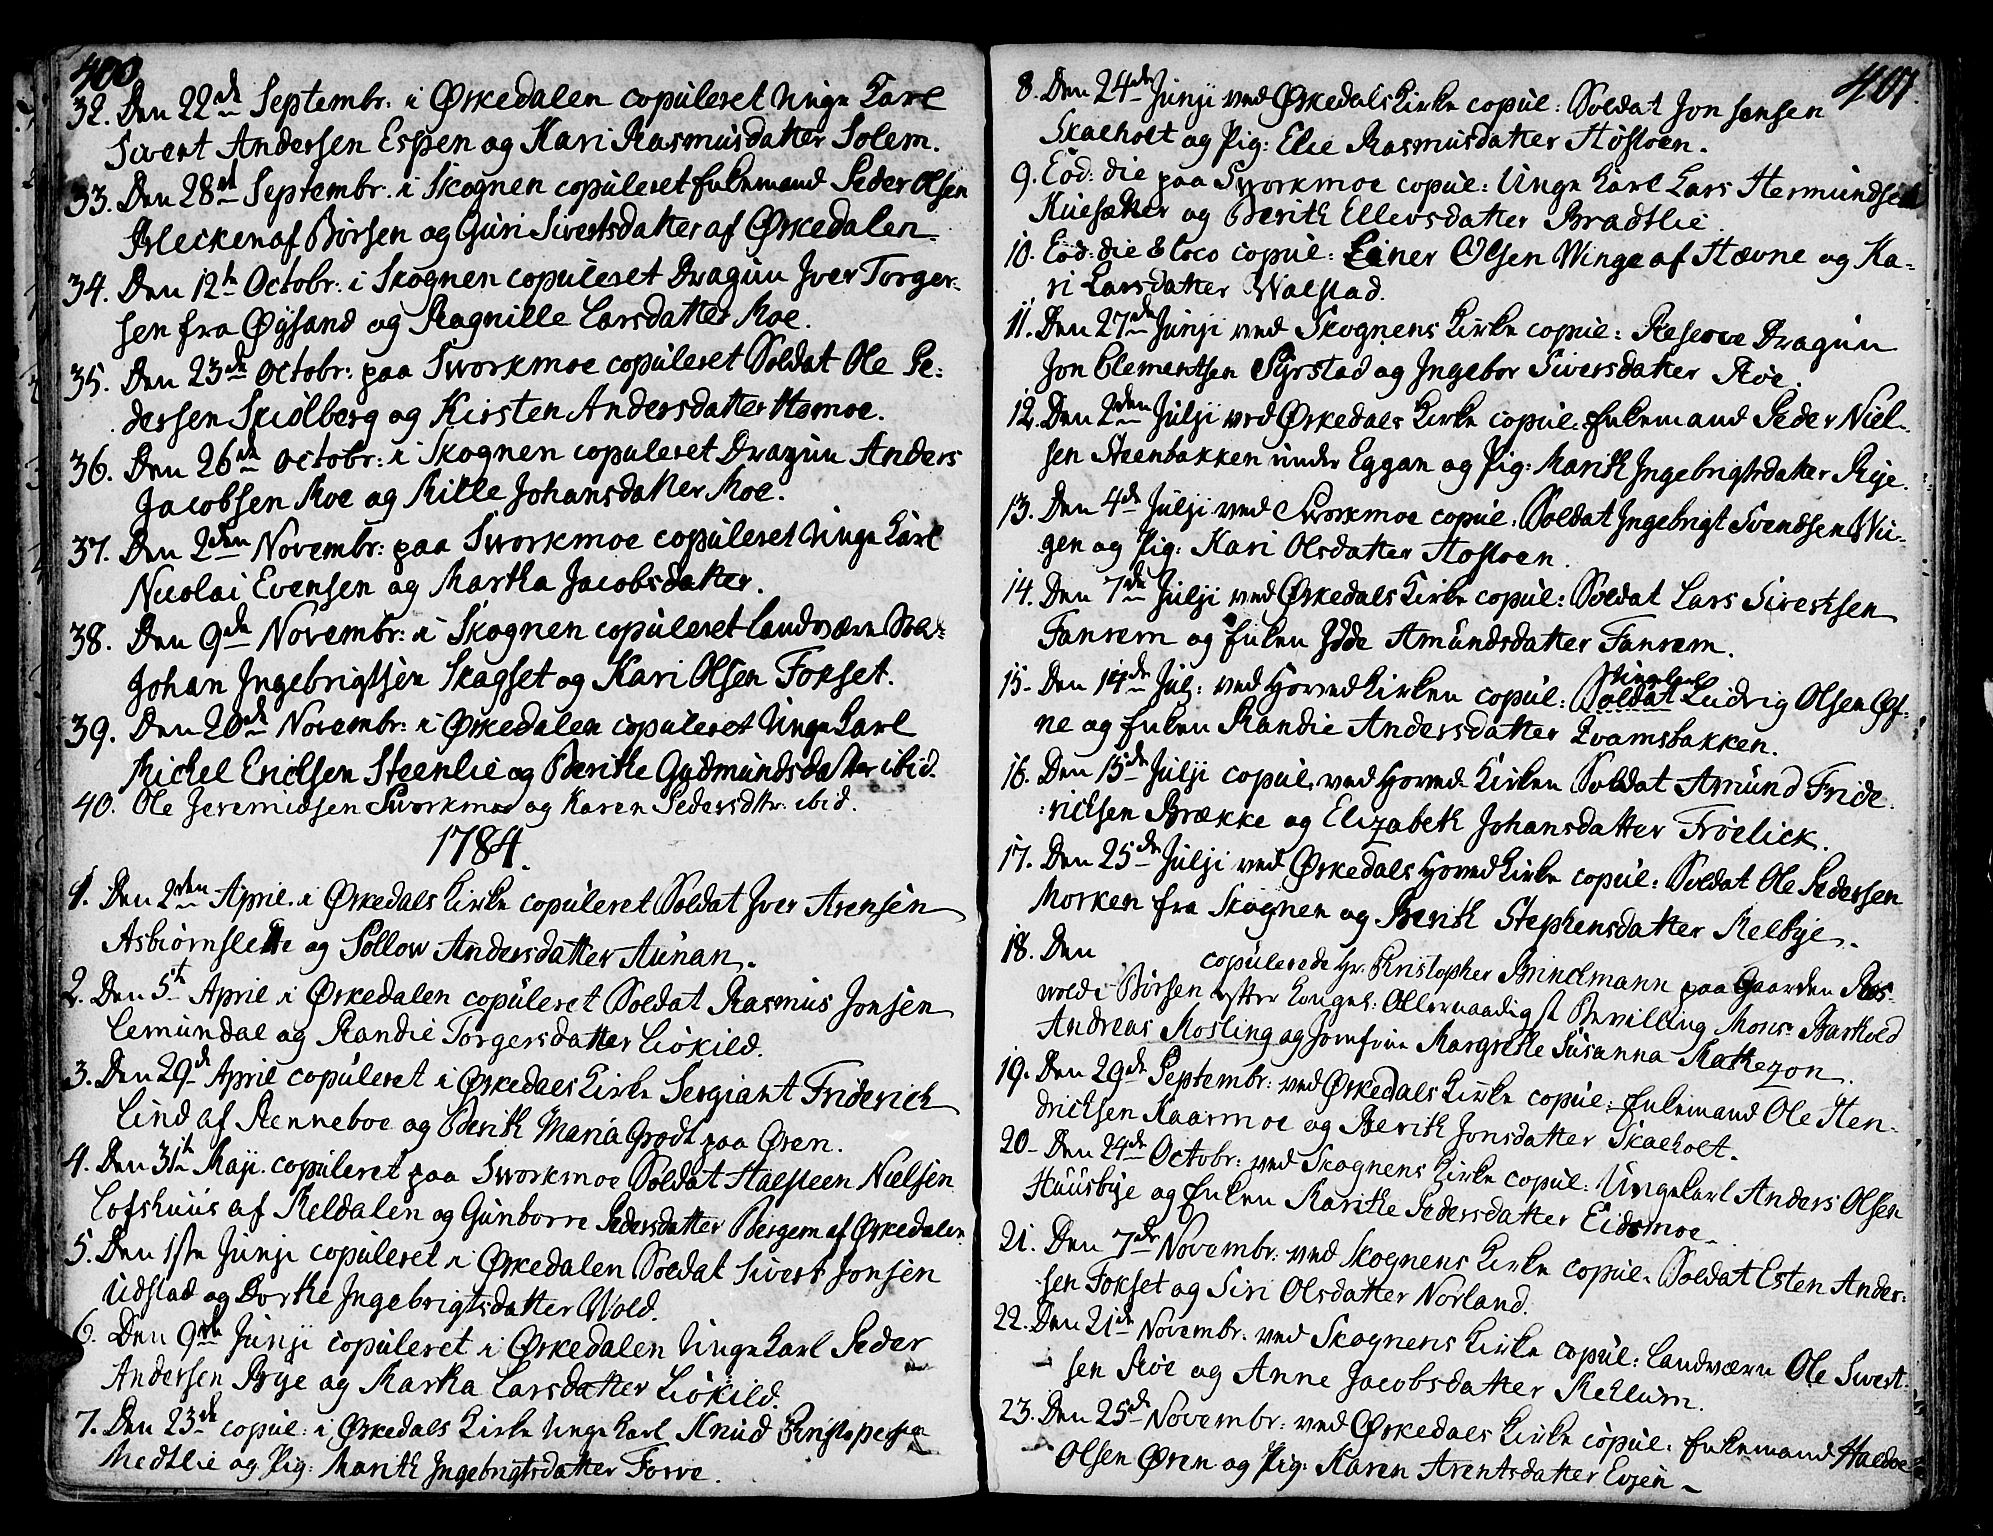 400
32. Den 22de Septembr: i Ørkedalen copuleret Unge Karl
Sivert Andersen Espen og Kari Rasmusdatter Solem.
33. Den 28de Septembr. i Skognen copuleret Enkemand Peder Olsen
Blecken af Børsen og Guri Sivertsdatter af Ørkedalen.
34. Den 12th Octobr: i Skognen copuleret Dragun Iver Torger-
sen fra Øysand og Ragnille Larsdatter Moe.
35. Den 23de Octobr: paa Sworkmoe copuleret Soldat Ole Pe-
dersen Skiølberg og Kirsten Andersdatter Homoe.
36. Den 26de Octobr: i Skognen copuleret Dragun Anders
Jacobsen Moe og Mille Johansdatter Moe.
37. Den 2den Novembr: paa Sworkmoe copuleret Unge Karl
Nicolai Evensen og Martha Jacobsdatter.
38. Den 9de Novembr: i Skognen copuleret Landværn Sol-
Johan Ingebrigtsen Skagset og Kari Olsen Fokset.
39. Den 20de Novembr: i Ørkedalen copuleret Unge Karl
Michel Ericksen Steenlie og Berithe Gudmundsdatter ibid.
40. Ole Jeremiæsen Sworkmoe og Karen Pedersdttr. ibid.
1784.
1. Den 2den April. i Ørkedals Kirke copuleret Soldat Iver Arensen
Asbiørnslette og Sollow Andersdatter Aunan.
2. Den 5th April i Ørkedalen copuleret Soldat Rasmus Jonsen
Lomundal og Randie Torgersdatter Liøkild.
3. Den 29de April copuleret i Ørkedals Kirke Sergiant Friderich
Lind af Renneboe og Berith Maria Grodt paa Øren.
4. Den 31th Maji. copuleret paa Sworkmoe Soldat Halsteen Nielsen
Lofshuus af Meldalen og Gunborre Pedersdatter Bergem af Ørkedalen
5. Den 1ste Junji copuleret i Ørkedalen Soldat Sivert Jonsen
Udstad og Dorthe Ingebrigtsdatter Wold.
6. Den 9de Junji copuleret i Ørkedalen Unge Karl Peder
Andersen Bye og Martha Larsdatter Liøkild.
7. Den 23de copul: i Ørkedals Kirke Unge Karl Knud Christopersen
Medtlie og Pig: Marith Ingebrigtsdatter Forve.
401.
8. Den 24de Junji ved Ørkedals Kirke copul: Soldat Jon Jonsen
Skaeholt og Pig: Elie Rasmusdatter Hofloen.
9. Eod: die paa Sworkmoe copul: Unge Karl Lars Hermundsen
Kuesætter og Berith Ellevsdatter Bradtlie.
10. Eod: die & loco copul: Einer Olsen Winge af Hævne og Ka-
ri Larsdatter Walstad.
11. Den 27de Junji ved Skognens Kirke copul: Reserve Dragun
Jon Clementsen Syrstad og Ingebor Siversdatter Roe.
12. Den 2den Julji ved Ørkedals Kirke copul: Enkemand Peder Niel-
sen Steenbakken under Eggan og Pig: Marith Ingebrigtsdatter Rye.
13. Den 4de Julji ved Sworkmoe copul. Soldat Ingebrigt Svendsen Wu-
gen og Pig: Kari Olsdatter Hofloen.
14. Den 7de Julji ved Ørkedals Kirke copul: Soldat Lars Sivertsen
Fanrem og Enken Idde Amundsdatter Fanrem.
15. Den 14de Julj: ved HovedKirken copul: Soldat Ludvig Olsen Øf-
ne og Enken Randie Andersdatter Qvamsbakken.
16. Den 15de Julji copul. ved Hoved-Kirken Soldat Amund Fride-
richsen Brække og Elizabeth Johansdatter Frøelick.
17. Den 25de Julji ved Ørkedals HovedKirke copul: Soldat Ole Pedersen
Morken fra Skognen og Berith Stephensdatter Melbye.
18. Den
copulerede Hr. Christopher Brinckmann paa Gaarden Ros-
wold i Børsen efter Kongel: Allernaadigst Bevilling Monsr Barthold
Andreas Mosling og Jomfrue Margrethe Susanna Matheson.
19. Den 29de Septembr: ved Ørkedals Kirke copul: Enkemand Ole Hen-
drichsen Kaarmoe og Berith Jonsdatter Skaeholt.
20. Den 24de Octobr: ved Skognens Kirke copul: Unge Karl Anders Olsen
Huusbye og Enken Marithe Pedersdatter Eidsmoe.
21. Den 7de Novembr: ved Skognens Kirke copul. Soldat Esten Ander-
sen Fokset og Siri Olsdatter Norland.
22. Den 21de Novembr. ved Skognens Kirke copul: Landværn Ole Sivert-
sen Roe og Anne Jacobsdatter Mellum.
23. Den 25de Novembr: ved Ørkedals Kirke copul. Enkemand Haldoe
Olsen Øren og Pig: Karen Arentsdatter Evjen